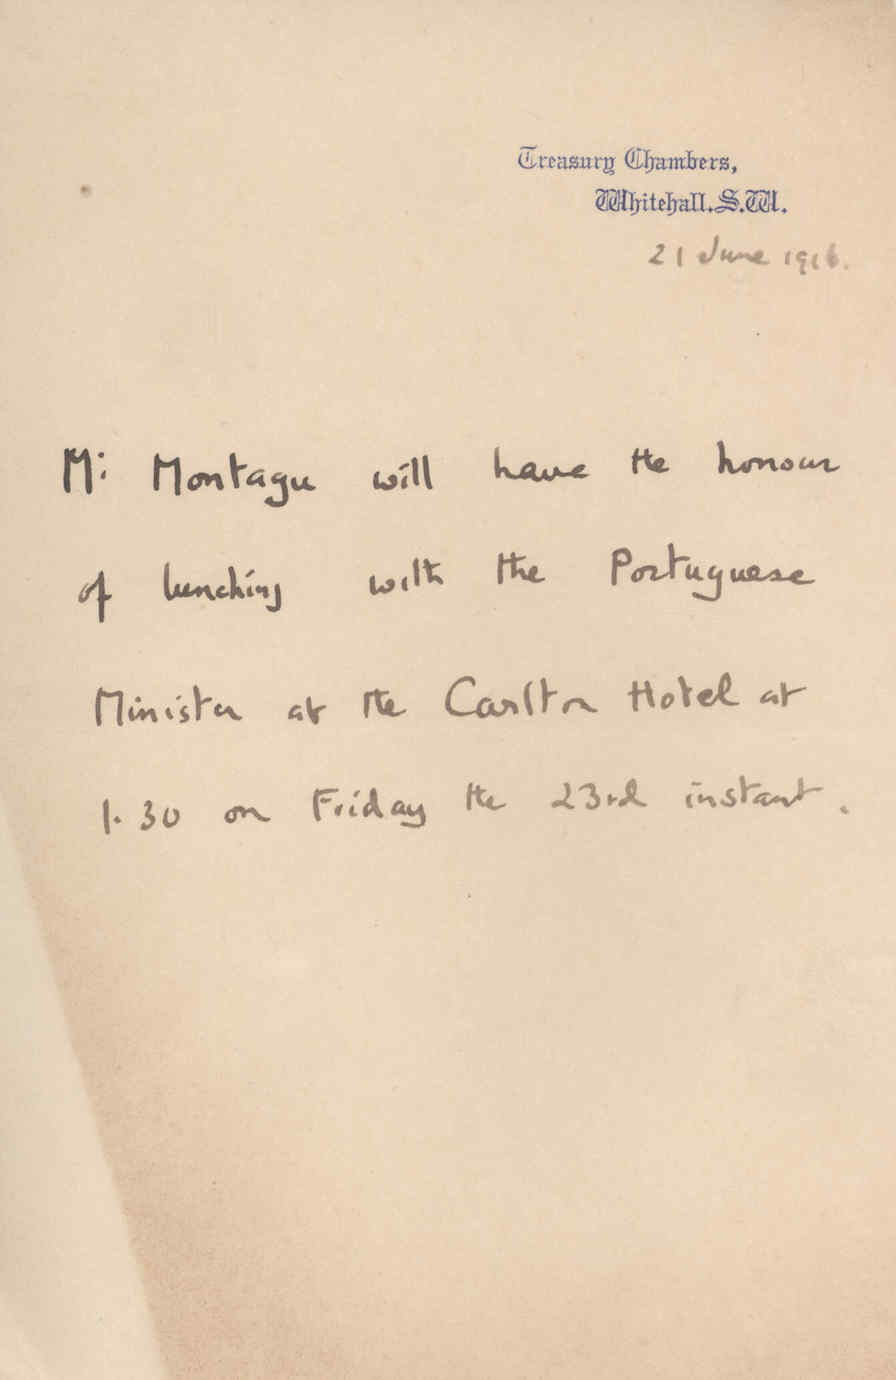 Treasury Chambers,
Whitehall. S.W.
21 June 1916.
Mr: Montagu will have the honour
of lunching with the Portuguese
Minister at the Carlton Hotel at
1.30 on Friday the 23rd instant.